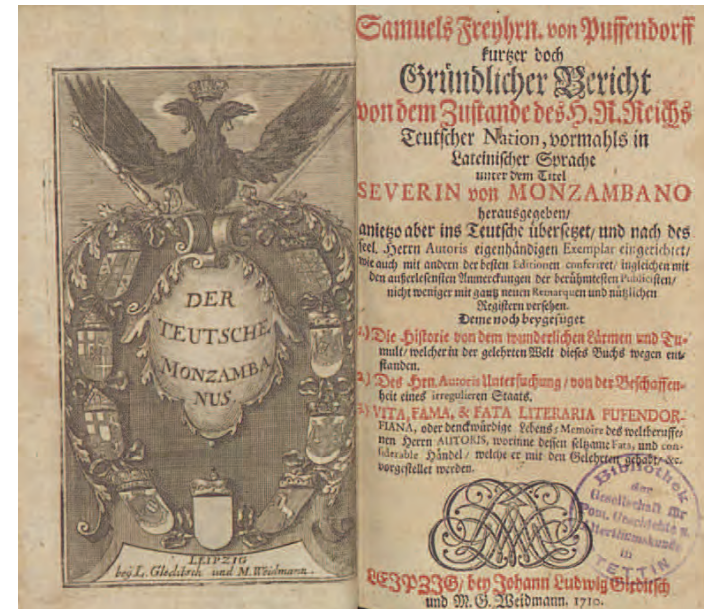 DER
TEUTSCHE
MONZAMBA
NUS.
LEIPZIG
bey L. Gleditsch und M. Weidmann.
Samuels Freyhrn. von Puffendorff
kurtzer doch
Gründlicher Bericht
von dem Zustande des H. R. Reichs
Teutscher Nation, vormahls in
Lateinischer Sprache
unter dem Titel
SEVERIN von MONZAMBANO
herausgegeben/
anietzo aber ins Teutsche übersetzet/ und nach des
seel. Herrn Autoris eigenhändigen Exemplar eingerichtet/
wie auch mit andern der besten Editionen conferiret/ ingleichen mit
den außerlesensten Anmerckungen der berühmtesten Publicisten/
nicht weniger mit gantz neuen Remarquen und nützlichen
Registern versehen.
Deme noch beygefüget
1.) Die Historie von dem wunderlichen Lärmen und Tu-
mult/ welcher in der gelehrten Welt dieses Buchs wegen ent-
standen.
2.) Des Hrn. Autoris Untersuchung/ von der Beschaffen-
heit eines irregulieren Staats.
3.) VITA, FAMA, & FATA LITERARIA PUFENDOR-
FIANA, oder denckwürdige Lebens-Memoire des weltberuffe-
nen Herrn AUTORIS, worinne dessen seltzame Fata, und con-
siderable Händel/ welche er mit den Gelehrten gehabt/ &c.
vorgestellet werden.
Bibliothek
der
Gesellschaft für
Pom. Geschichte u.
Alterthumskunde
in
STETTIN
LEIPZIG/ bey Johann Ludwig Gleditsch
und M. G. Weidmann. 1710.